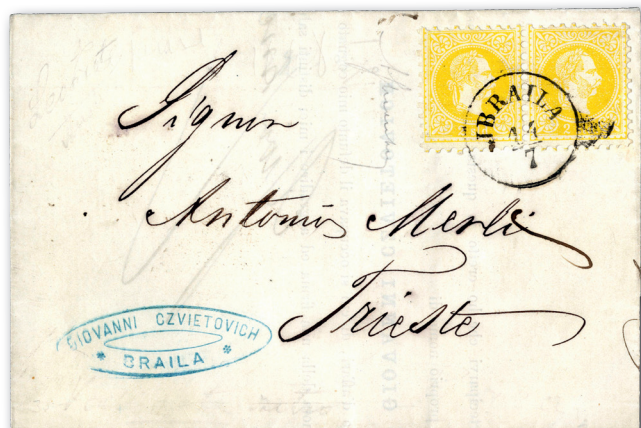 IBRAILA
7
Signor
Antonio Merli
Trieste
GIOVANNI CZVIETOVICH
* BRAILA *